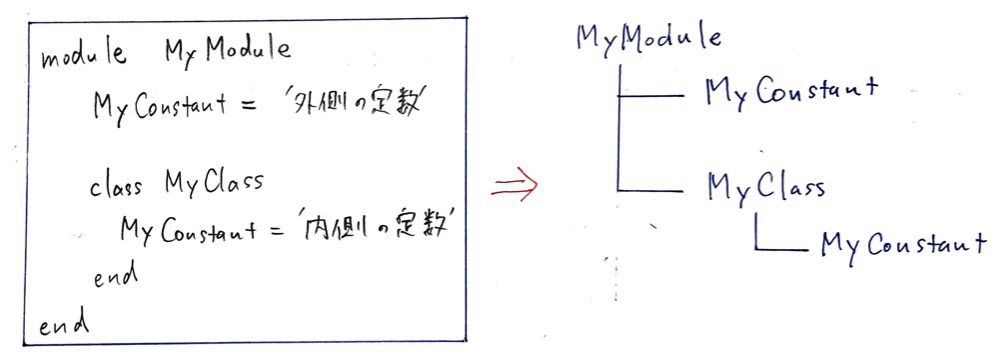 module MyModule
MyConstant = '外側の定数'
class MyClass
MyConstant = '内側の定数'
end
end
⇒
MyModule
MyConstant
MyClass
MyConstant